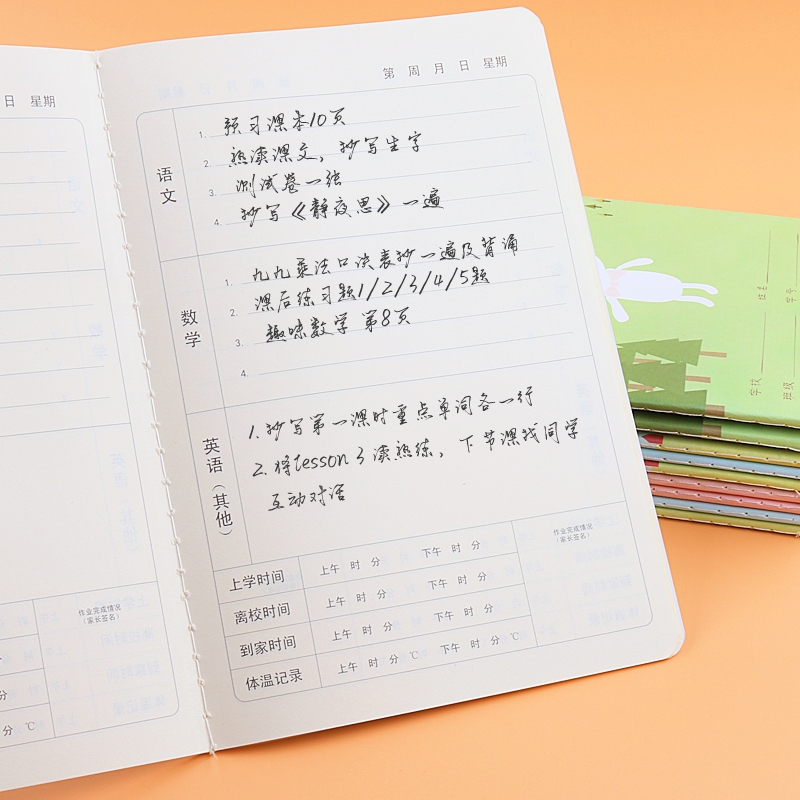 日 星期
作业完成情况
(家长签名)
分
分
分
分 ℃
第 周 月 日 星期
语文
1. 预习课本10页
2. 熟读课文，抄写生字
3. 测试卷一张
4. 抄写《静夜思》一遍
数学
1. 九九乘法口决表抄一遍及背诵
2. 课后练习题1/2/3/4/5题
3. 趣味数学 第8页
4.
英语（其他）
1. 抄写第一课时重点单词各一行
2. 将lesson 3 读熟练，下节课找同学
互动对话
上学时间 上午 时 分 下午 时 分
离校时间 上午 时 分 下午 时 分
到家时间 上午 时 分 下午 时 分
体温记录 上午 时 分 ℃ 下午 时 分 ℃
作业完成情况
(家长签名)
学校
班级
姓名
学号